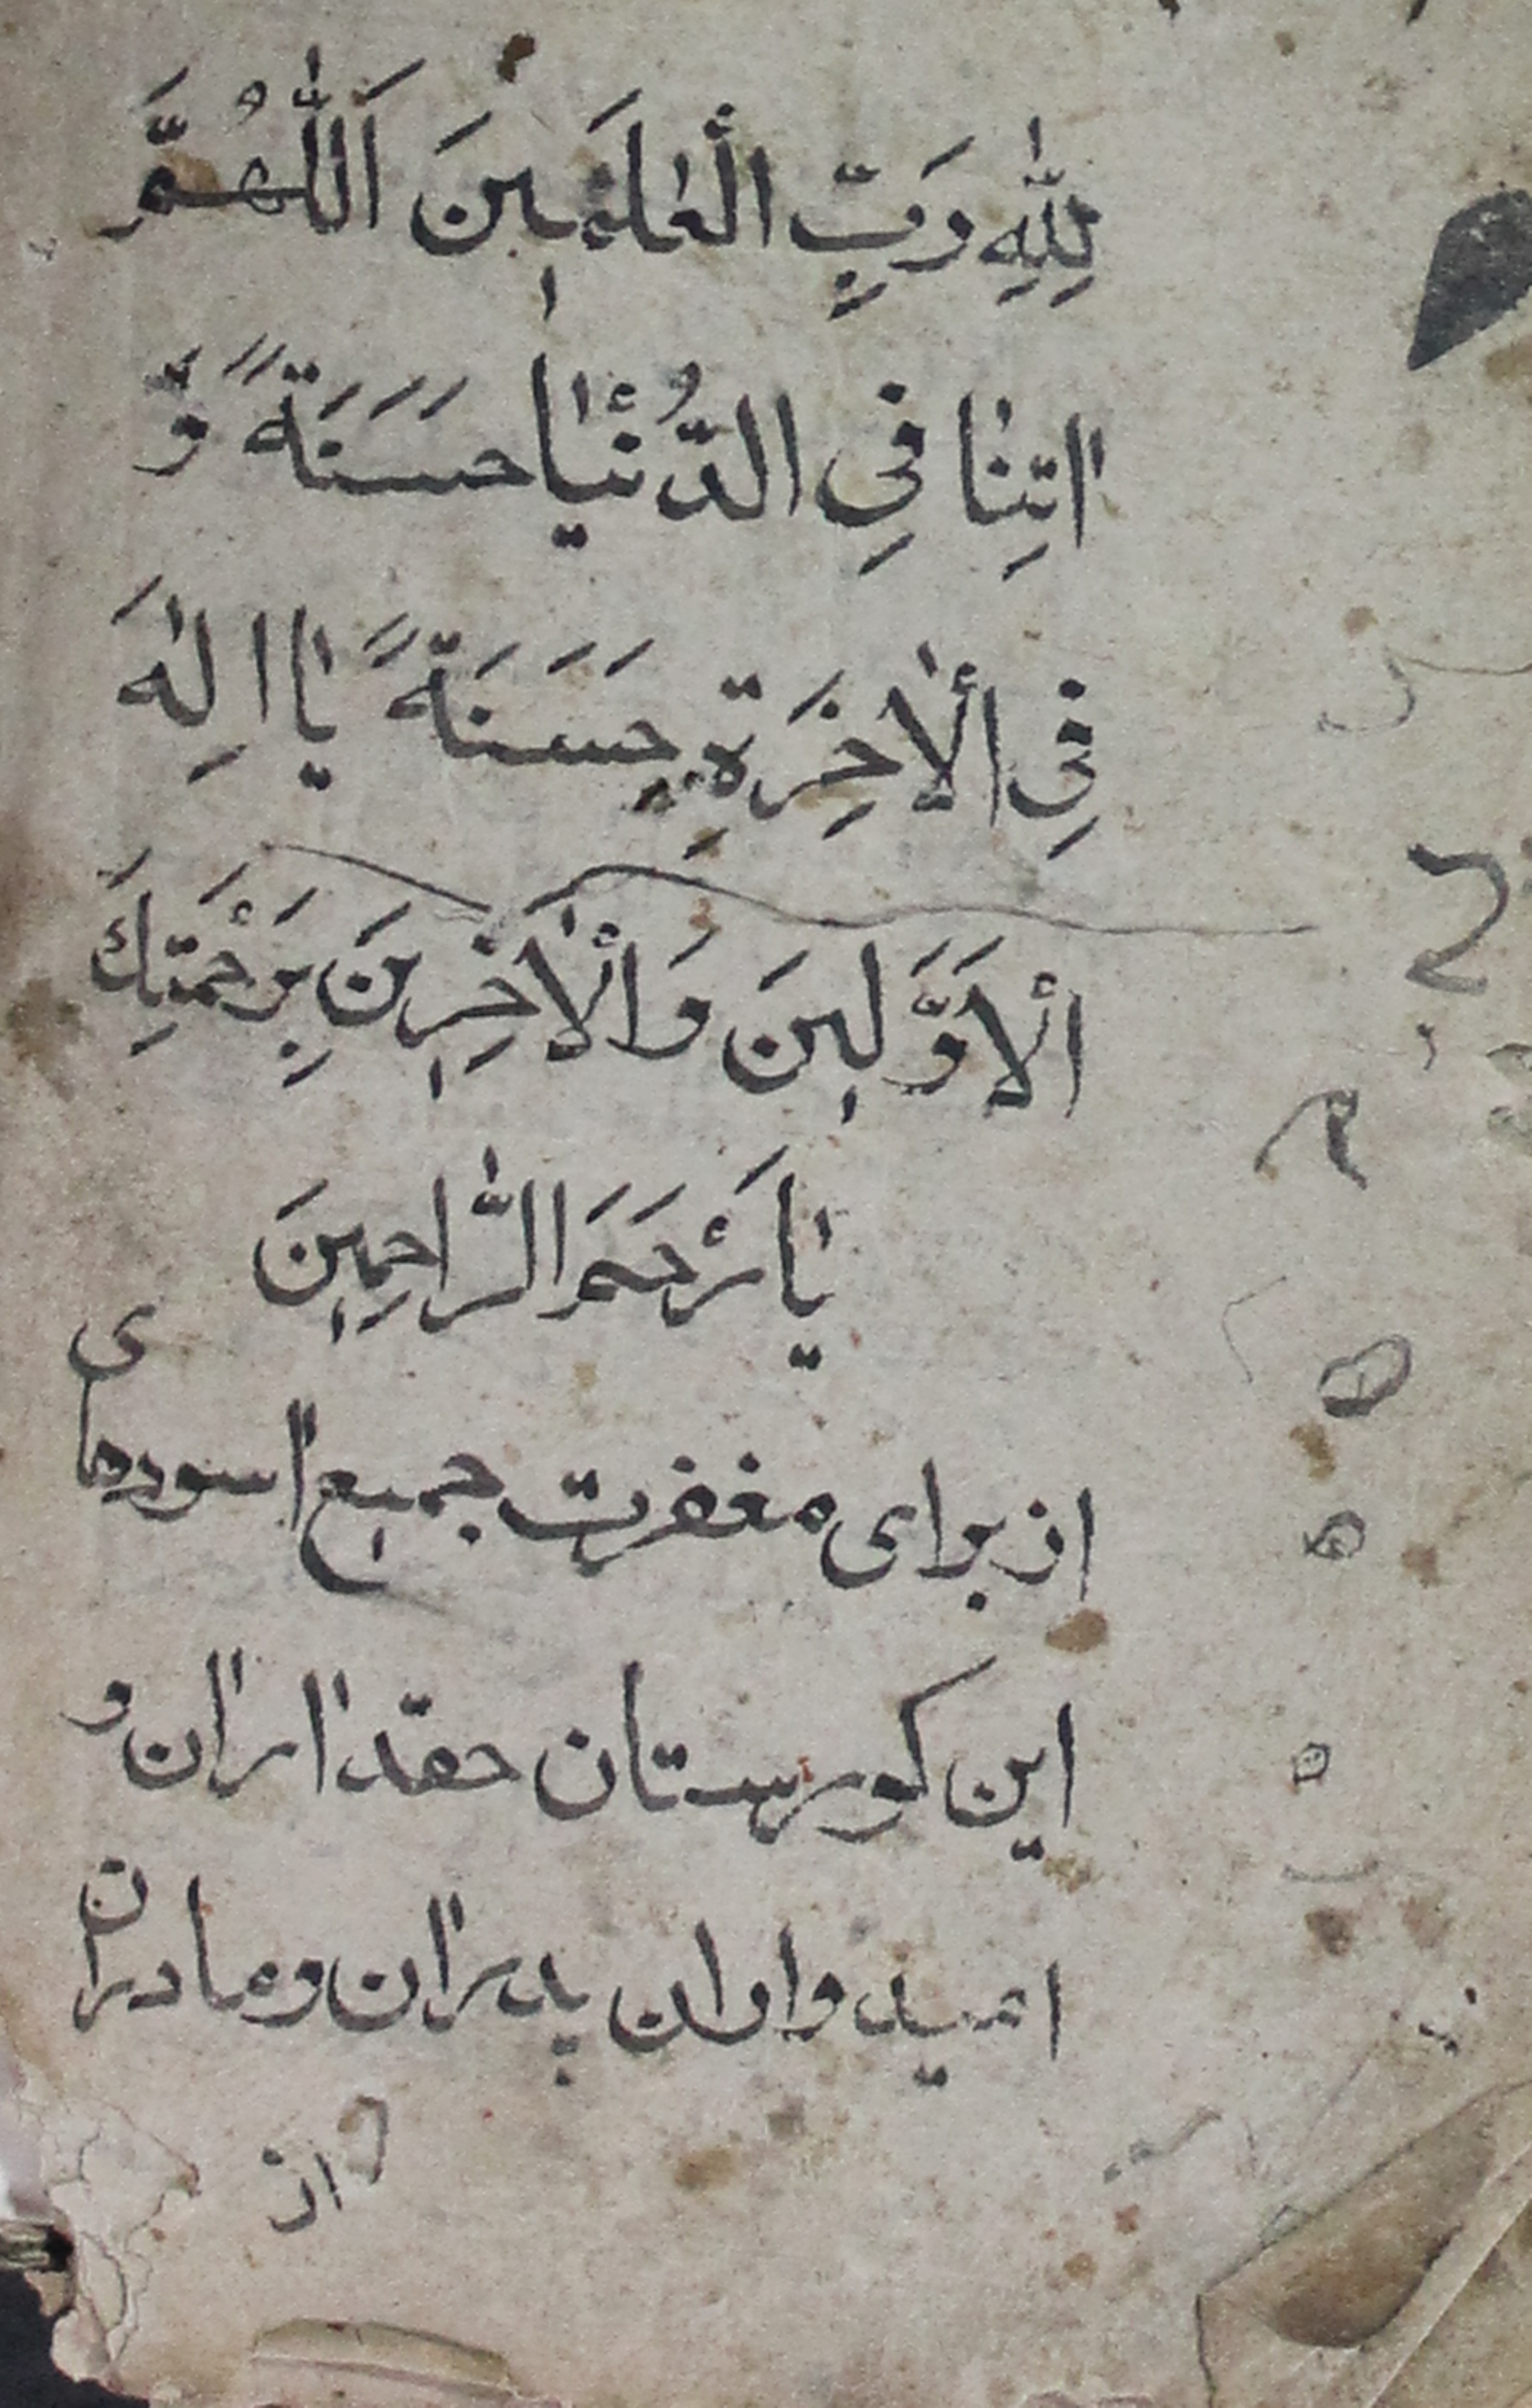 لِلّٰهِ رَبِّ الْعٰلَمٖينَ اَللّٰهُمَّ
اٰتِنٰا فِى الدُّنْيٰا حَسَنَةً وَّ
فِى الْاٰخِرَةِ حَسَنَةً يٰا اِلٰهَ
الْاَوَّلٖينَ وَالْاٰخِرٖينَ بِرَحْمَتِكَ
يٰا اَرْحَمَ الرَّاحِمٖينَ
از براى مغفرت جميع اسودهاى
اين كورستان حقداران و
اميدواران پدران و مادران
از